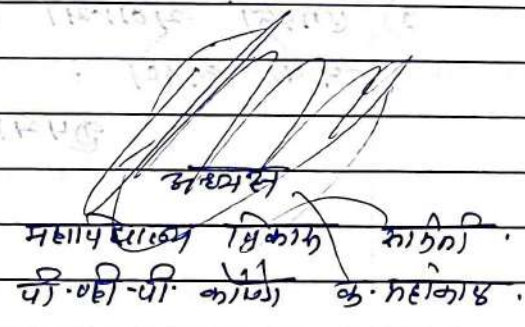 अध्यक्ष
महाविद्यालय विकास समिती.
पी.व्ही.पी. कॉलेज क. महांकाळ